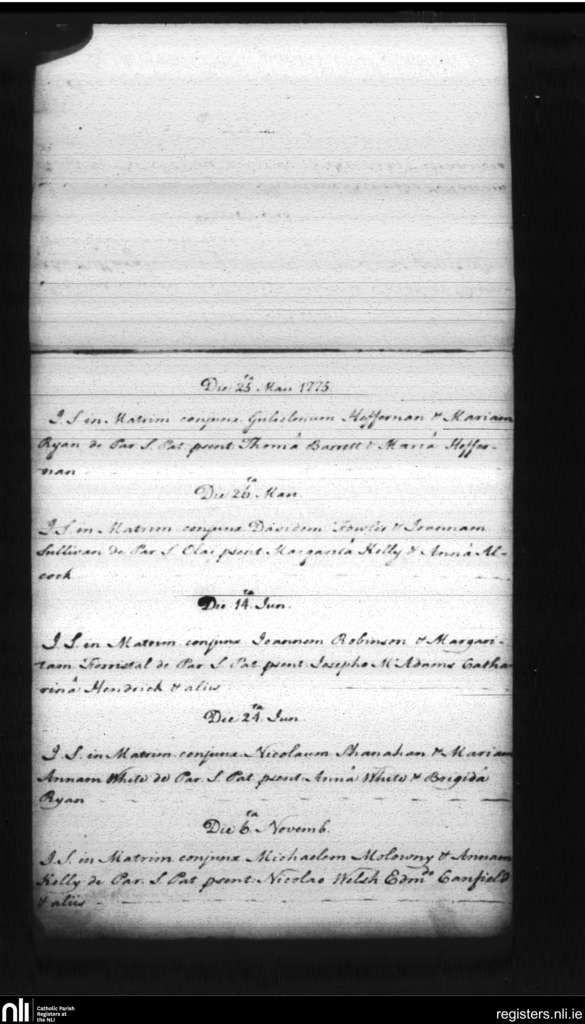 Die 25.ta Maii 1775
J. S. in Matrim conjunx Gulielmum Heffernan & Mariam
Ryan de Par. S. Pat. psent. Thomâ Barrett & Mariâ Heffer-
nan
Die 26.ta Maii
J. S. in Matrim conjunx Davidem Fowler & Joannam
Sullivan de Par. S. Olai psent. Margaritâ Kelly & Annâ Al-
cock
Die 14.ta Jun.
J. S. in Matrim conjunx Joannem Robinson & Margari-
tam Forristal de Par S. Pat. psent. Josepho McAdams Catha-
rinâ Hendrick & aliis
Die 24.ta Jun
J. S. in Matrim conjunx Nicolaum Shanahan & Mariam
Annam White de Par. S. Pat. psent. Annâ White & Brigidâ
Ryan
Die 6.ta Novemb.
J. S. in Matrim conjunx Michaelem Molowny & Annam
Kelly de Par. S. Pat psent. Nicolao Welsh Edmdo Canfield
& aliis
nli
Catholic Parish
Registers at
the NLI
registers.nli.ie